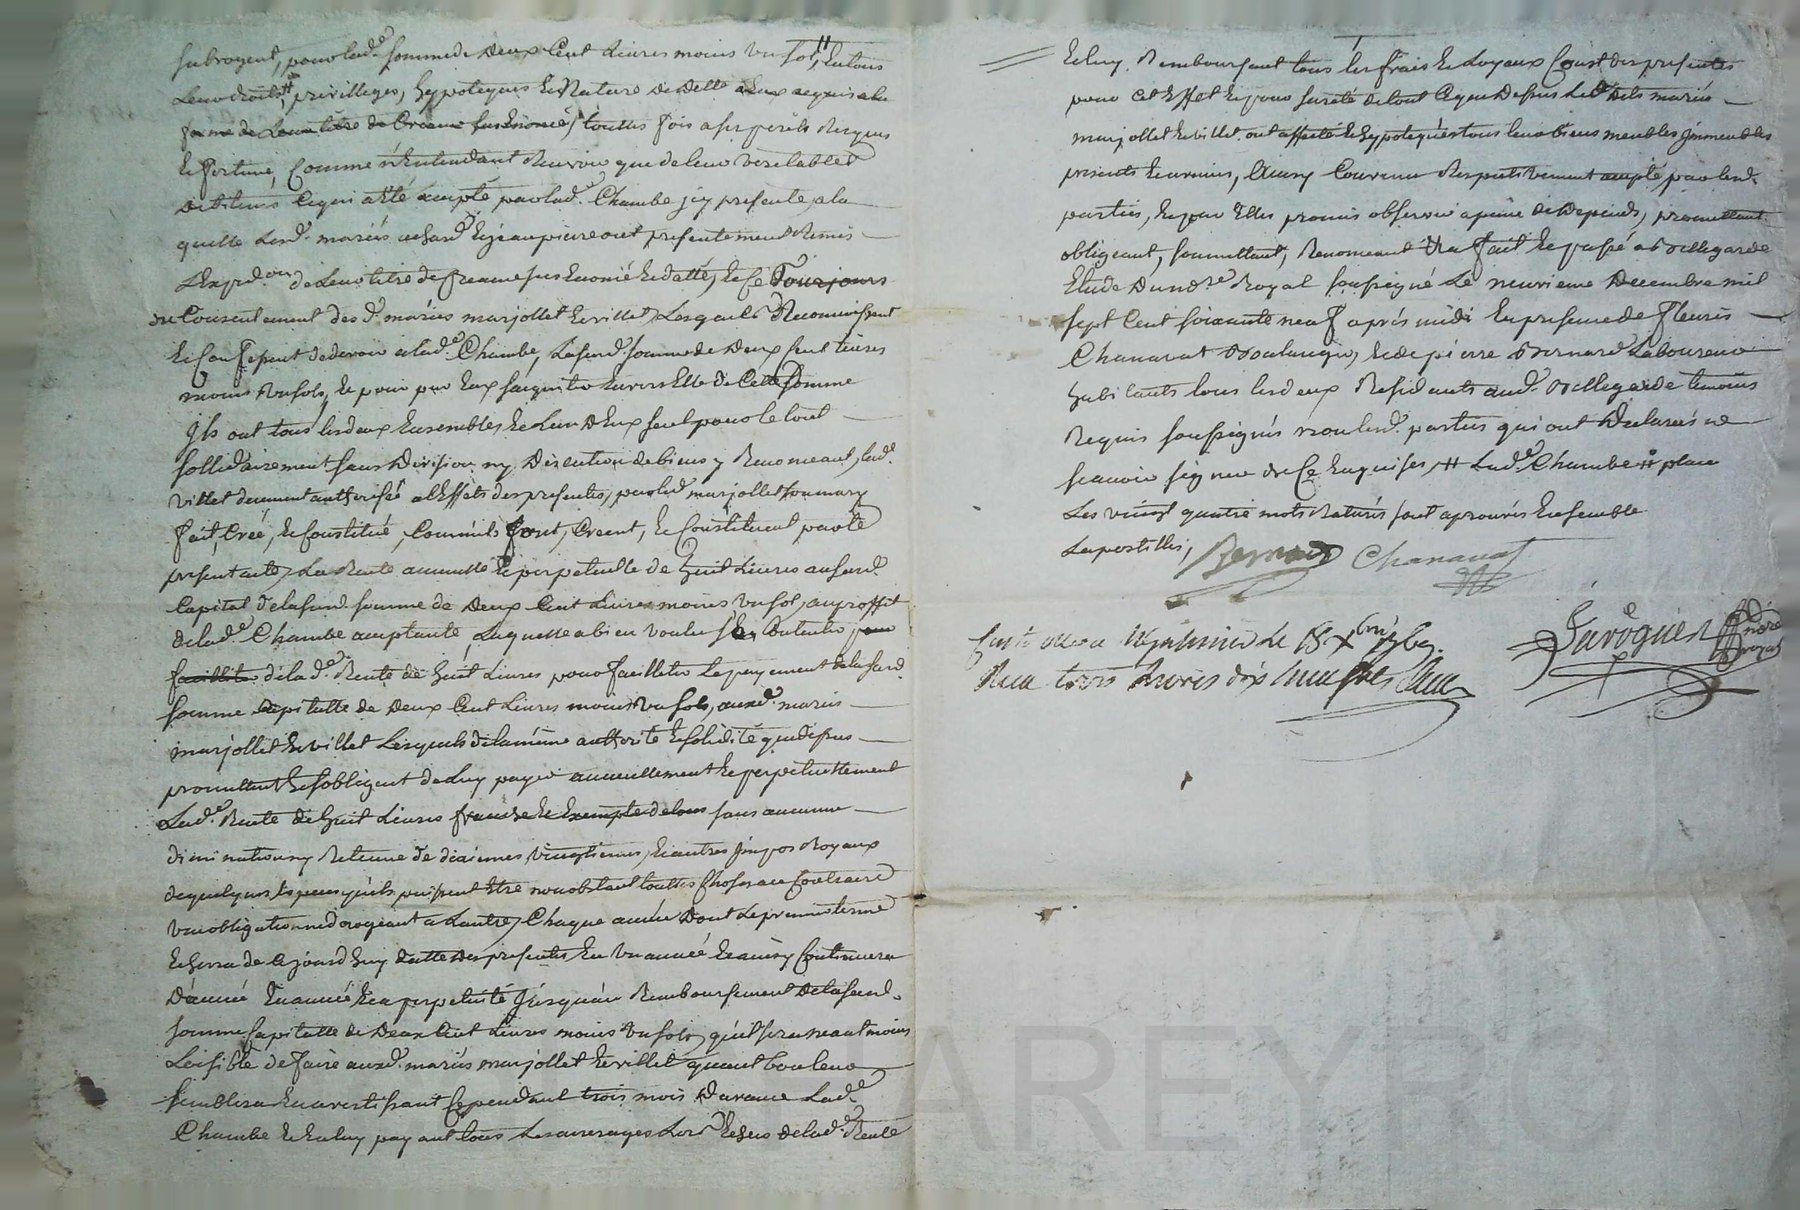 subrogent, pour lad.e somme de Deux Cent Livres moins un sol, En tous
Leurs droits, privilleges, hypoteques Et Nature de Dette a Eux acquis a la
forme de Leur titre de Creance sus Enoncé, touttes fois a ses perils Risques
Et fortune, Comme n'Entendant Recevoir que de leur veritables
Debiteurs Ce qui a Eté accepté par lad.e Chambe jcy presente, a la
quelle Lesd. mariés achard Et jeanpierre ont presentement Remis
L'Expedon de Leur titre de Creance sus Enoncé Et datté, Et Ce Toujours
du Consentement des d. mariés marjollet Et villet, Lesquels Reconnoissent
Et Confessent de devoir a lad.e Chambe, La susd. somme de Deux Cent Livres
moins un sols, Et pour par Eux s'acquiter Envers Elle de Cette somme
Ils ont tous lesdeux Ensembles Et L'un D'Eux seul pour le tout
sollidairement sans Division ny Discution de biens y Renonceant, lad.e
villet duement authorisée a L'Effets des presentes, par led. marjollet son mary
fait, Créé, Et Constitué, Comm'ils font, Creent, Et Constituent par Ce
presentacte, La Rente annuelle Et perpetuelle de huit Livres au susd.
Capital de la susd. somme de Deux Cent Livres moins un sol, au proffit
de lad.e Chambe acceptante Laquelle a bien voulu s'En Contenter pour
faciliter de lad.e Rente de huit Livres pour facilliter Le payement de la susd.
somme Capitalle de Deux Cent Livres moins un sols, auxd. mariés
marjollet Et villet Lesquels de la même authorité Et solidité que dessus
promettent Et s'obligent de Luy payer annuellement Et perpetuellement
Lad.e Rente de huit Livres franche Et Exempte de tous sans aucunne
diminution ny Retenue de dixiemes, vingtiemes, Et autres jmpos Royaux
de quelques Especes qu'ils puissent Etre nonobstant touttes Choses au Contraire
une obligation ne derogeant a Lautre, Chaque année Dont Le premier terme
Echerra de ajourd'huy datte des presentes En un année Et ainsy Continuera
D'année En année Et a perpetuité jusqu'au Remboursement de la susd.
somme Capitalle de Deux Cent Livres moins un sols, qu'il sera neantmoins
Loisible de faire auxd. mariés marjollet Et villet quand bon leur
semblera En avertissant Cependant trois mois D'avance Lad.e
Chambe Et En luy payant tous Les arrerages Lors Echeus de lad.e Rente
Et luy Remboursant tous les frais Et Loyaux Coust des presentes
pour Cet Effet Et pour sureté de tout Ce que Dessus Lesd. Dits mariés
marjollet Et villet ont affecté Et hypotequés tous leur biens meubles jmmeubles
presents Et avenirs, Ainsy Convenu Respectivement accepté par lesd.
parties, Et par Elles promis observer a peine de Depends, promettant
obligeant, soumettant, Renonceant &ra fait Et passé a Bellegarde
Etude Du nore Royal soussigné Le neuvieme Decembre mil
sept Cent soixante neuf après midi En presence de fleuris
Chanavat Boulanger, Et de pierre Bernard Laboureur
habitants tous lesdeux Residants aud. Bellegarde temoins
Requis soussignés non lesd. parties qui ont Declarées ne
scavoir signer de Ce Enquises, # Lad.e Chambe # place
Les vingt quatre mots Raturés sont aprouvés Ensemble
Lapostilles,
Bernard Chanavat
Le 18 Xbre 1769.
Reçu trois Livres dix neuf sols
Laroque Nore royal
AREYRO